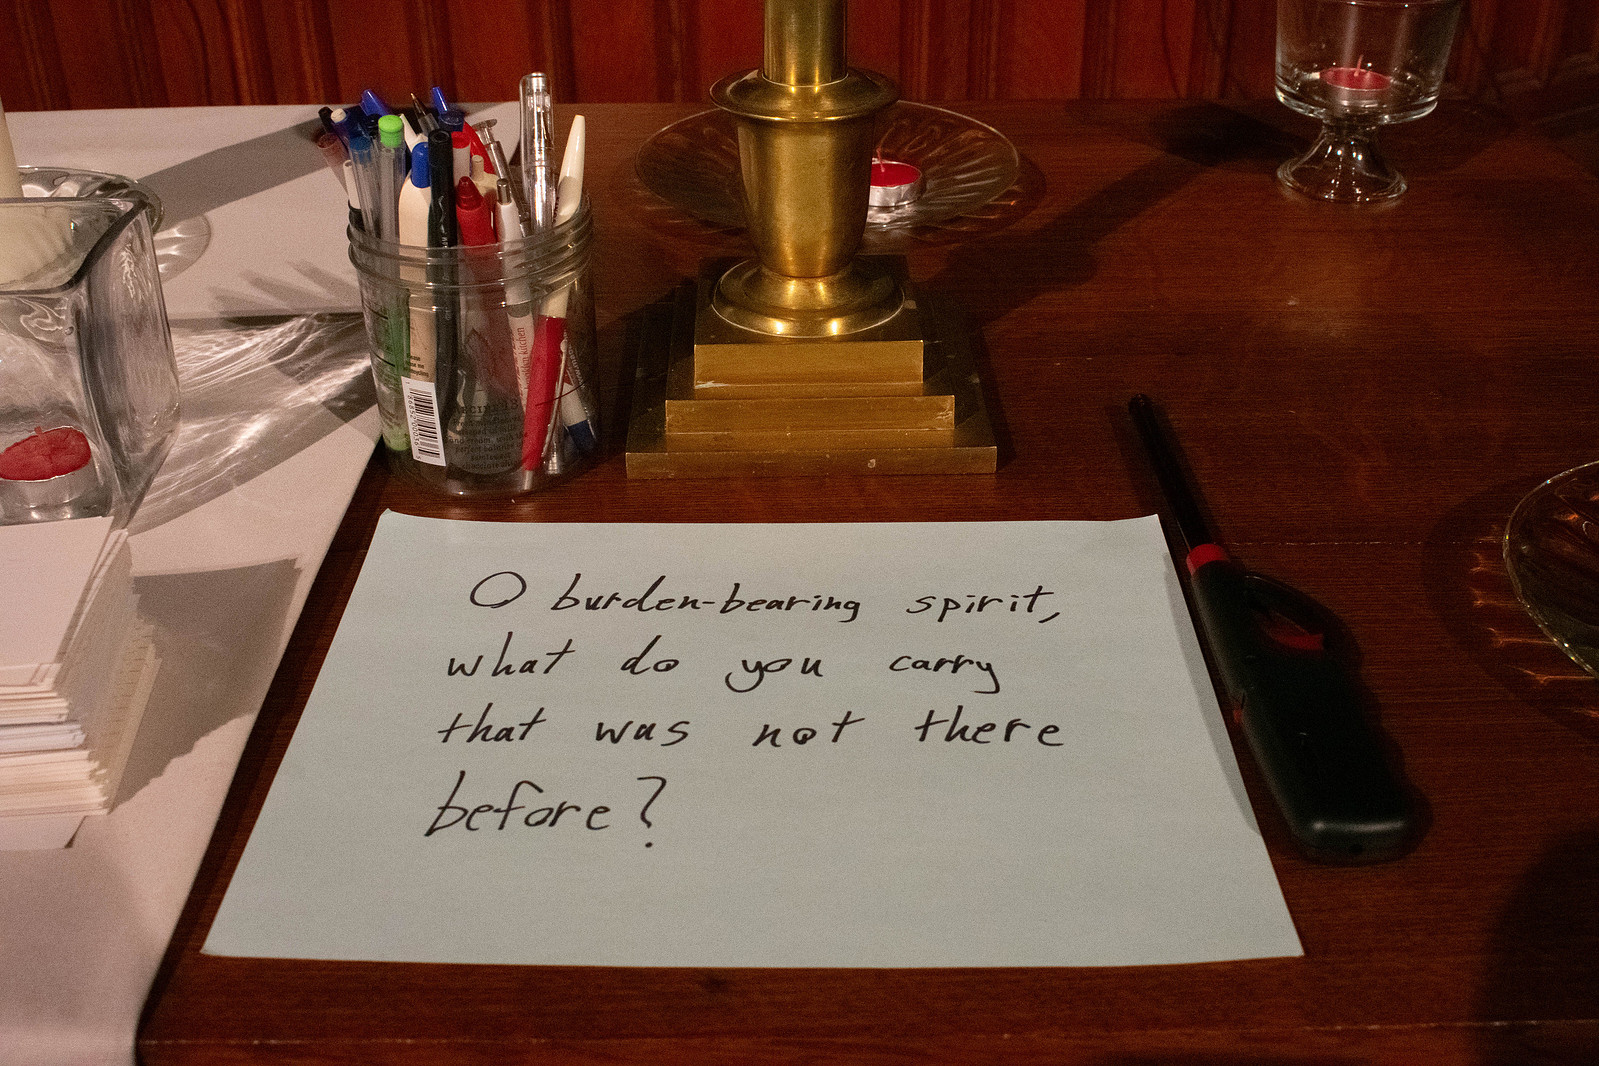 O burden-bearing spirit,
what do you carry
that was not there
before?